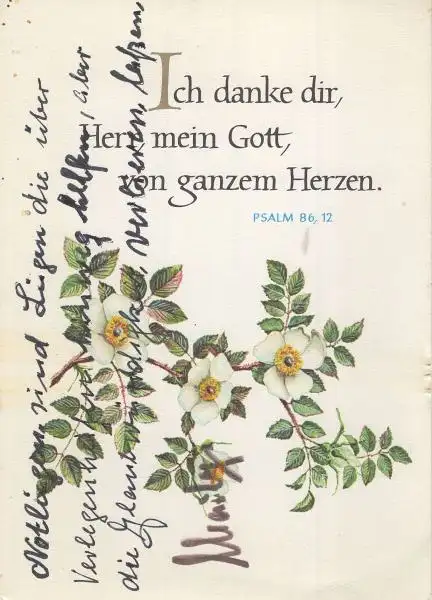 Ich danke dir,
Herr, mein Gott,
von ganzem Herzen.
PSALM 86, 12
Notlügen sind Lügen die über
Verlegenheit hinweg helfen, aber
die Glaubwürdigkeit verlieren laßen